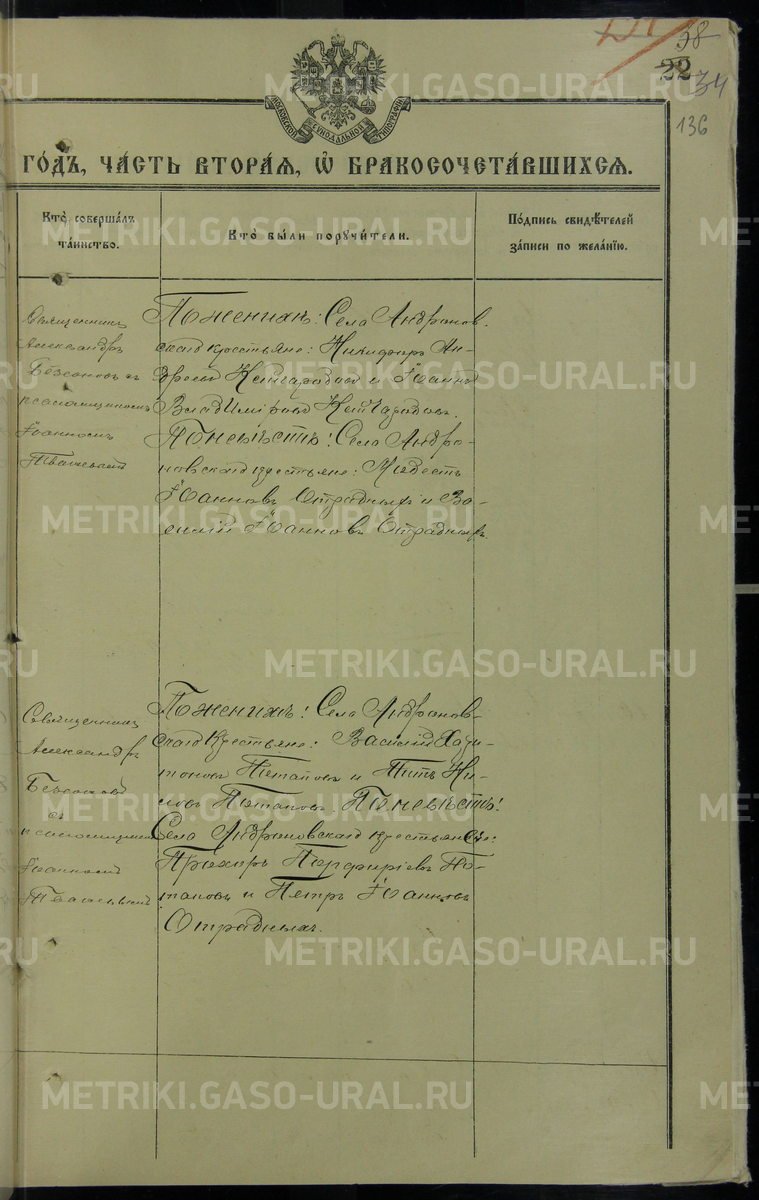 58
22 34
136
МОСКОВСКОЙ СѴНОДАЛЬНОЙ ТИПОГРАФІИ
ГО́ДЪ, ЧА́СТЬ ВТОРА́Я, Ѡ҆ БРАКОСОЧЕТА́ВШИХСЯ.
Кто̀ соверша́лъ та́инство.
Кто̀ бы́ли порꙋчи́тели.
По́дпись свидѣ́телей за́писи по жела́нїю.
Священникъ
Александръ
Безсоновъ съ
псаломщикомъ
Іоанномъ
По женихѣ: Села Андронов-
скаго крестьяне: Никифоръ Ан-
дреевъ и Іоаннъ
Владиміровъ
По невѣстѣ: Села Андро-
новскаго крестьяне: Модестъ
Іоанновъ Отрадныхъ и Ва-
силій Іоанновъ Отрадныхъ.
Священникъ
Александръ
Безсоновъ
съ
псаломщикомъ
Іоанномъ
По женихѣ: Села Андронов-
скаго крестьяне: Василій Хари-
тоновъ Потаповъ и Титъ Ни-
ловъ Потаповъ. По невѣстѣ:
Села Андроновскаго крестьяне:
Прохоръ Порфиріевъ По-
таповъ и Петръ Іоанновъ
Отрадныхъ.
METRIKI.GASO-URAL.RU